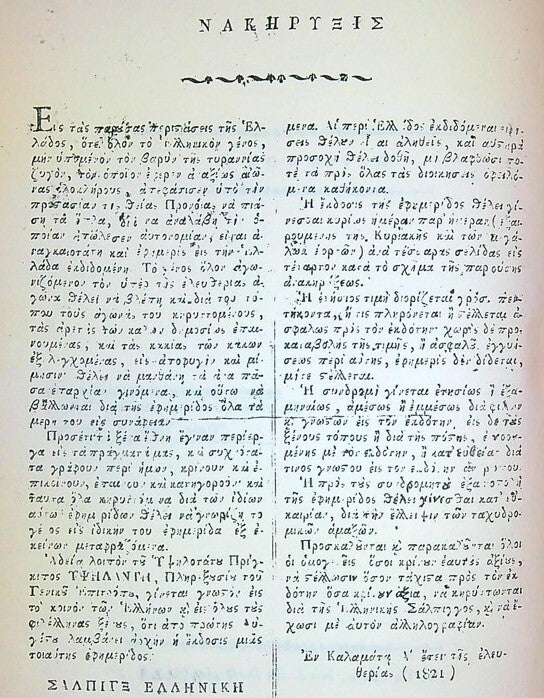 ΝΑΚΗΡΥΞΙΣ
Εἰς τὰς παρούσας περιστάσεις τῆς Ἑλ-
λάδος, ὅτε ὅλον τὸ ἑλληνικὸν γένος,
μὴν ὑπομένον τὸν βαρὺν τῆς τυραννίας
ζυγὸν, τὸν ὁποῖον ἔφερεν ἀναξίως αἰῶ-
νας ὁλοκλήρους, ἀπεφάσισεν ὑπὸ τὴν
προστασίαν τῆς θείας Προνοίας, νὰ πιά-
σῃ τὰ ὅπλα, διὰ νὰ ἀναλάβῃ τὴν ὁ-
ποίαν ἀπώλεσεν αὐτονομίαν, εἶναι ἀ-
ναγκαιοτάτη καὶ ἐφημερὶς εἰς τὴν Ἑλ-
λάδα ἐκδιδομένη. Τὸ γένος ὅλον ἀγω-
νιζόμενον τὸν ὑπὲρ τῆς ἐλευθερίας ἀ-
γῶνα θέλει νὰ βλέπῃ καὶ διὰ τοῦ τύ-
που τοὺς ἀγῶνάς του κηρυττομένους,
τὰς ἀρετὰς τῶν καλῶν δημοσίως ἐπαι-
νουμένας, καὶ τὰς κακίας τῶν κακῶν
ἐξελεγχομένας, εἰς ἀποφυγὴν καὶ μί-
μησιν θέλει νὰ μανθάνῃ τὰ ἀνὰ πᾶ-
σα ἐπαρχίαν γινόμενα, καὶ οὕτω νὰ
βάλλωνται διὰ τῆς ἐφημερίδος ὅλα τὰ
μέρη του εἰς συνάφειαν
Προσέτι τὰ ἔξω ἔθνη ἔγιναν περίερ-
γα εἰς τὰ πράγματά μας, καὶ συχνότα-
τα γράφουν περὶ ἡμῶν, κρίνουν καὶ ἐ-
πικρίνουν, ἐπαινοῦν καὶ κατηγοροῦν καὶ
ταῦτα ὅλα κηρύττονται διὰ τῶν ἰδίων
αὐτῶν ἐφημερίδων θέλει νὰ γνωρίζῃ τὸ
γένος εἰς ἰδικήν του ἐφημερίδα ἐξ ἐ-
κείνων μεταφραζόμενα.
Ἀδείᾳ λοιπὸν τοῦ Ὑψηλοτάτου Πρίγ-
κιπος ΥΨΗΛΑΝΤΗ, Πληρεξουσίου τοῦ
Γενικοῦ Ἐπιτρόπου, γίνεται γνωστὸν εἰς
τὸ κοινὸν τῶν Ἑλλήνων κ̀ εἰς ὅλους τοὺς
φιλέλληνας ξένους, ὅτι ἀπὸ πρώτης Αὐ-
γούστου λαμβάνει ἀρχὴν ἡ ἔκδοσις μιᾶς
τοιαύτης ἐφημερίδος.
ΣΑΛΠΙΓΞ ΕΛΛΗΝΙΚΗ
μένα. Αἱ περὶ Ἑλλάδος ἐκδιδόμεναι εἰδή-
σεις θέλουν εἶναι ἀληθεῖς, καὶ αὐστηρὰ
προσοχὴ θέλει δοθῆ, μὴ βλάψωσί πο-
τε τὰ πρὸς ὅλας τὰς διοικήσεις ὀφειλό-
μενα καθήκοντα.
Ἡ ἔκδοσις τῆς ἐφημερίδος θέλει γί-
νεσθαι κυρίως ἡμέραν παρ' ἡμέραν (ἐξαι-
ρουμένης τῆς Κυριακῆς καὶ τῶν μεγά-
λων ἑορτῶν) ἀνὰ τέσσαρας σελίδας εἰς
τέταρτον κατὰ τὸ σχῆμα τῆς παρούσης
ἀνακηρύξεως.
Ἡ ἐτήσιος τιμὴ διορίζεται γρόσ. πεν-
τήκοντα, ἥ τις πληρόνεται ἢ στέλλεται ἀ-
σφαλῶς πρὸς τὸν ἐκδότην χωρὶς δὲ προ-
καταβολῆς τῆς τιμῆς, ἢ ἀσφαλοῦς ἐγγυή-
σεως περὶ αὐτῆς, ἐφημερὶς δὲν δίδεται,
μήτε στέλλεται.
Ἡ συνδρομὴ γίνεται ἐτησίως ἢ ἑξα-
μηναίως, ἀμέσως ἢ ἐμμέσως διὰ φίλων
κ̀ γνωστῶν εἰς τὸν ἐκδότην, εἰς δὲ τοὺς
ξένους τόπους ἢ διὰ τῆς πόστης, ἑνουμένης
μὲ τὸν ἐκδότην, ἢ κατ' εὐθεῖαν διά
τινος γνωστοῦ εἰς τὸν ἐκδότην ἀνθρώπου.
Ἡ πρὸς τοὺς συνδρομητὰς ἐξαποστολὴ
τῆς ἐφημερίδος θέλει γίνεσθαι κατ' εὐ-
καιρίαν, διὰ τὴν ἔλλειψιν τῶν ταχυδρο-
μικῶν ἁμαξῶν.
Προσκαλοῦνται κ̀ παρακαλοῦνται ὅλοι
οἱ ὁμογενεῖς ὅσοι κρίνουν ἑαυτοὺς ἀξίους,
νὰ στέλλωσιν ὅσον τάχιστα πρὸς τὸν ἐκ-
δότην ὅσα κρίνουν ἄξια, νὰ κηρύττωνται
διὰ τῆς Ἑλληνικῆς Σάλπιγγος, κ̀ νὰ ἔ-
χωσι μὲ αὐτὸν ἀλληλογραφίαν.
Ἐν Καλαμάτᾳ Α' ἔτει τῆς ἐλευ-
θερίας (1821)